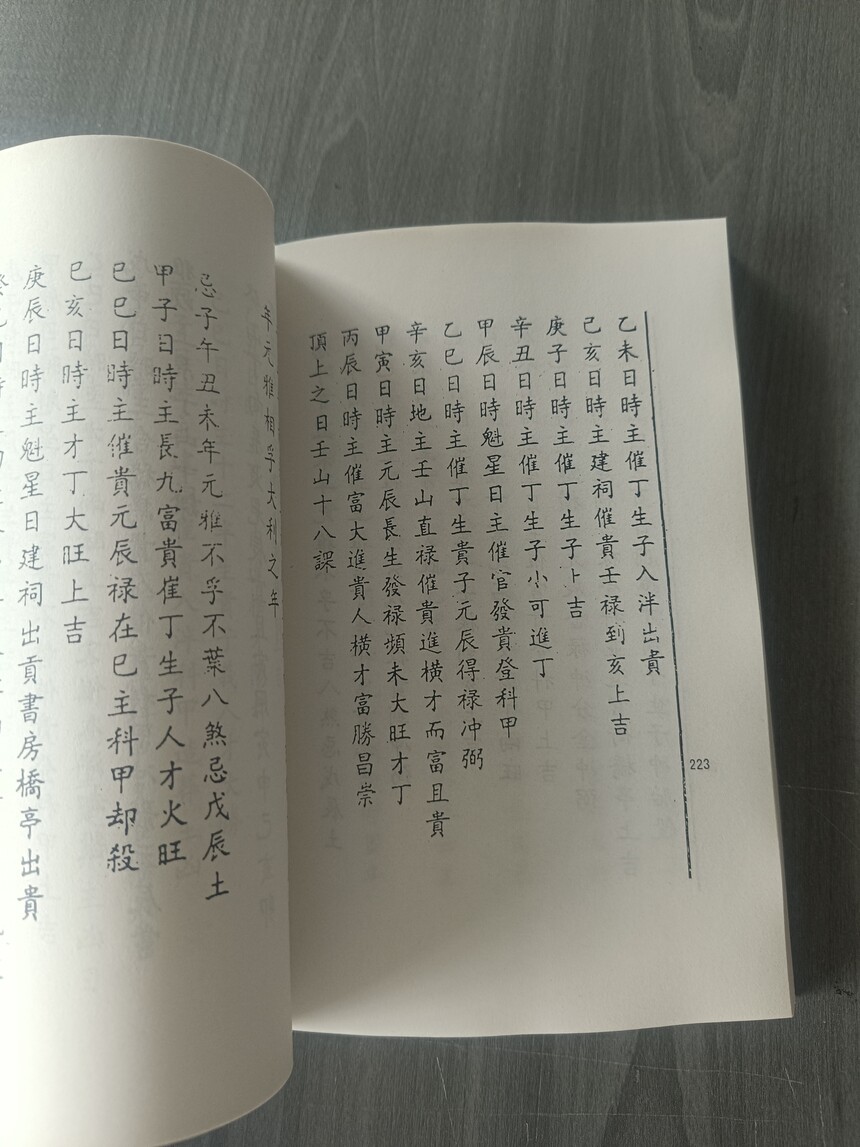 乙未日時主催丁生子入泮出貴
己亥日時主建祠催貴壬禄到亥上吉
庚子日時主催丁生子卜吉
辛丑日時主催丁生子小可進丁
甲辰日時魁星日主催官發貴登科甲
乙巳日時主催丁生貴子元辰得禄冲弼
辛亥日地主壬山直禄催貴進橫才而富且貴
甲寅日時主元辰長生發禄頻未大旺才丁
丙辰日時主催富大進貴人橫才富勝昌崇
頂上之日壬山十八課
223
年元雅相孚大利之年
忌子午丑未年元雅不孚不葉八煞忌戊辰土
甲子日時主長九富貴催丁生子人才火旺
巳巳日時主催貴元辰禄在巳主科甲却殺
巳亥日時主才丁大旺上吉
庚辰日時主魁星日建祠出貢書房橋亭出貴